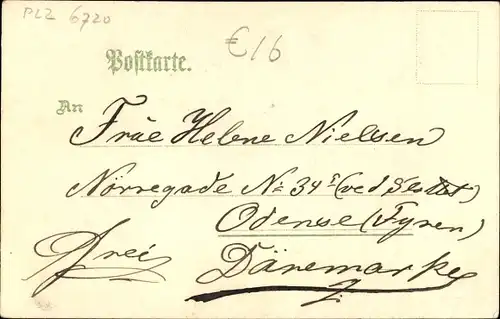 PLZ 6720
€16
Postkarte.
An
Frue Helene Nielsen
Nörregade № 34 (ved
Odense (Fyen)
Frei
Dänemark